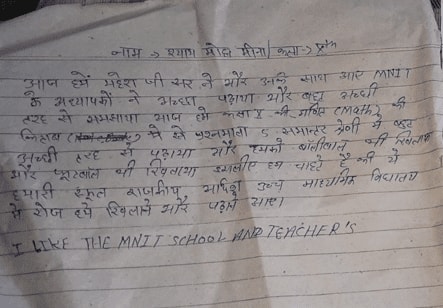 नाम → श्याम मोहन मीना / कक्षा →
आज हमें महेश जी सर ने और उनके साथ आए MNIT
के अध्यापकों ने अच्छा पढ़ाया और बहुत अच्छी
तरह से समझाया आज हमें कक्षा X की गणित (Math) की
किताब में से प्रश्नमाला 5 समान्तर श्रेणी में बहुत
अच्छी तरह से पढ़ाया और हमको वॉलीबाल भी खिलाया
और फुटबाल भी खिलाया इसलिए हम चाहते है की ये
हमारी स्कूल राजकीय उच्च माध्यमिक विद्यालय
में रोज हमें खिलाने और पढ़ाने आए।
I LIKE THE MNIT SCHOOL AND TEACHER'S